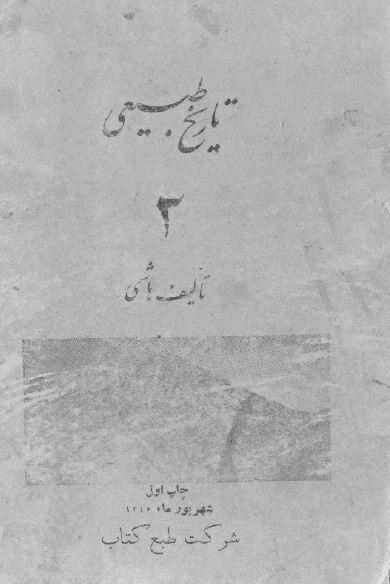 تاریخ طبیعی
۳
تألیف هاشمی
چاپ اول
شهریور ماه
شرکت طبع کتاب